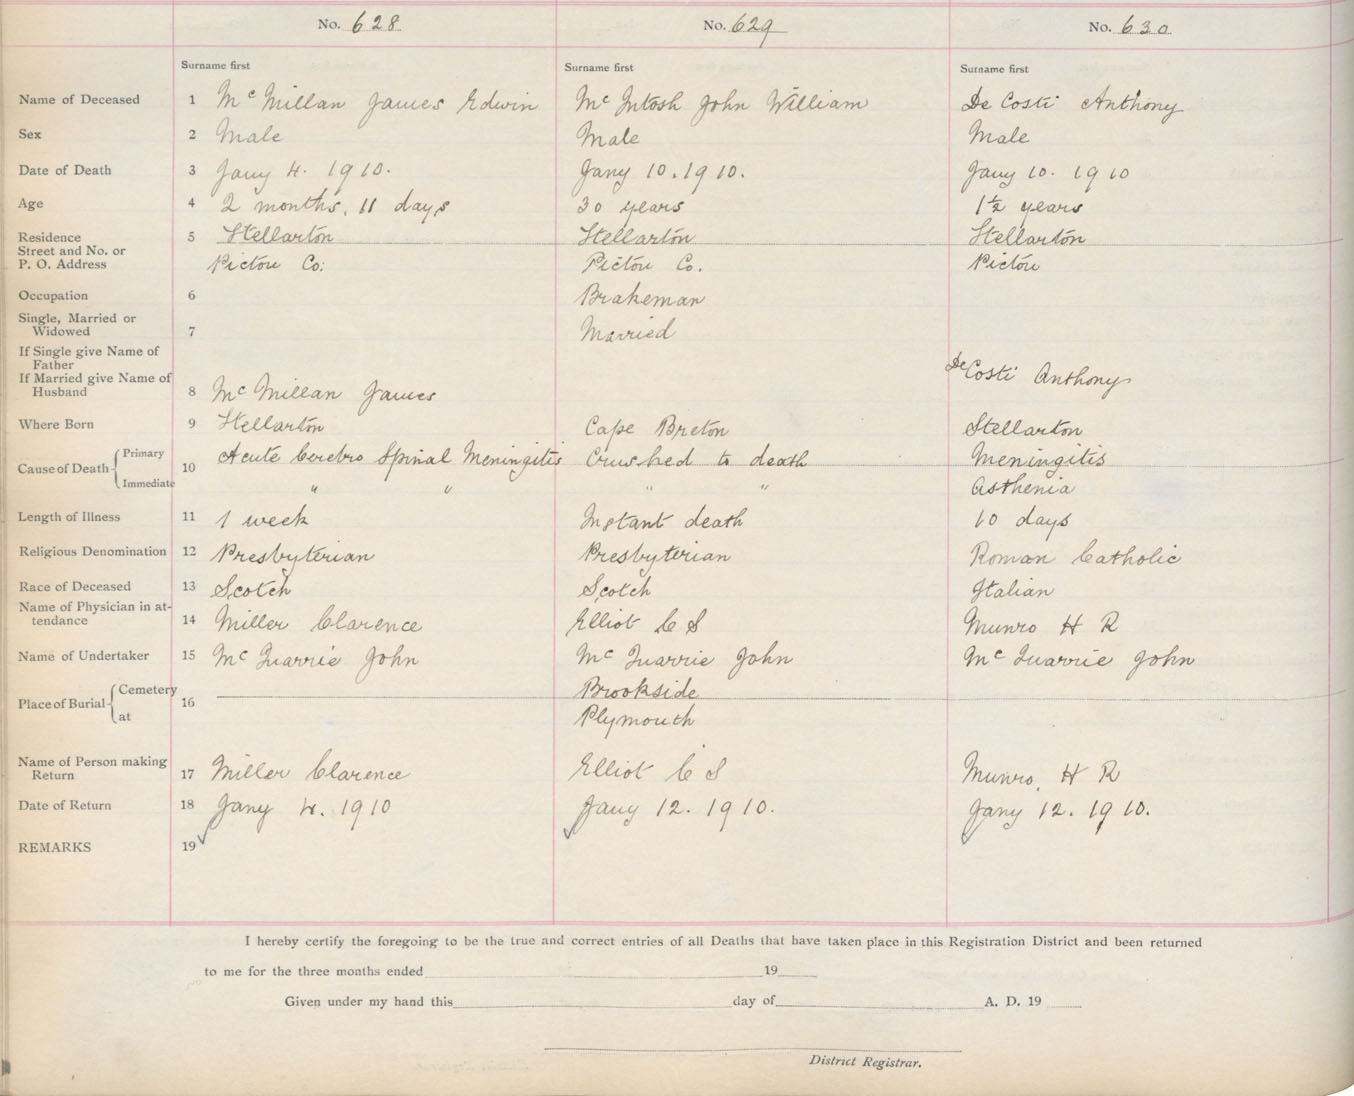 No. 628 No. 629 No. 630
Surname first Surname first Surname first
Name of Deceased 1 Mc Millan James Edwin Mc Intosh John William De Costi Anthony
Sex 2 Male Male Male
Date of Death 3 Jany 4. 1910. Jany 10. 1910. Jany 10. 1910
Age 4 2 months, 11 days 30 years 1½ years
Residence 5 Stellarton Stellarton Stellarton
Street and No. or
P. O. Address Pictou Co: Pictou Co. Pictou
Occupation 6 Brakeman
Single, Married or
Widowed 7 Married
If Single give Name of
Father
If Married give Name of De Costi Anthony
Husband 8 Mc Millan James
Where Born 9 Stellarton Cape Breton Stellarton
Cause of Death Primary 10 Acute Cerebro Spinal Meningitis Crushed to death Meningitis
Immediate " " " " Asthenia
Length of Illness 11 1 week Instant death 10 days
Religious Denomination 12 Presbyterian Presbyterian Roman Catholic
Race of Deceased 13 Scotch Scotch Italian
Name of Physician in at-
tendance 14 Miller Clarence Elliot C S Munro H R
Name of Undertaker 15 Mc Quarrie John Mc Quarrie John Mc Quarrie John
Place of Burial Cemetery 16 Brookside
at Plymouth
Name of Person making
Return 17 Miller Clarence Elliot C S Munro, H R
Date of Return 18 Jany 4. 1910 Jany 12. 1910. Jany 12. 1910.
REMARKS 19
I hereby certify the foregoing to be the true and correct entries of all Deaths that have taken place in this Registration District and been returned
to me for the three months ended 19
Given under my hand this day of A. D. 19
District Registrar.